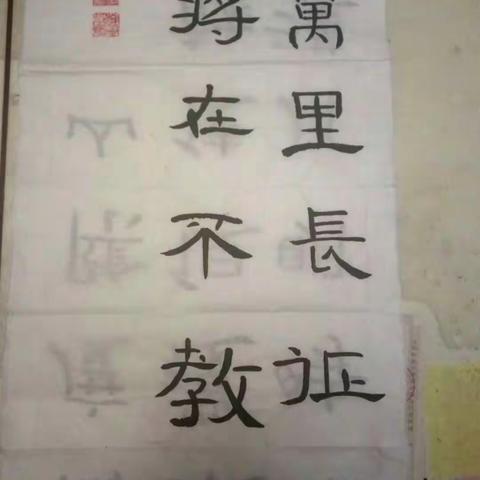 萬里長征
將在不教